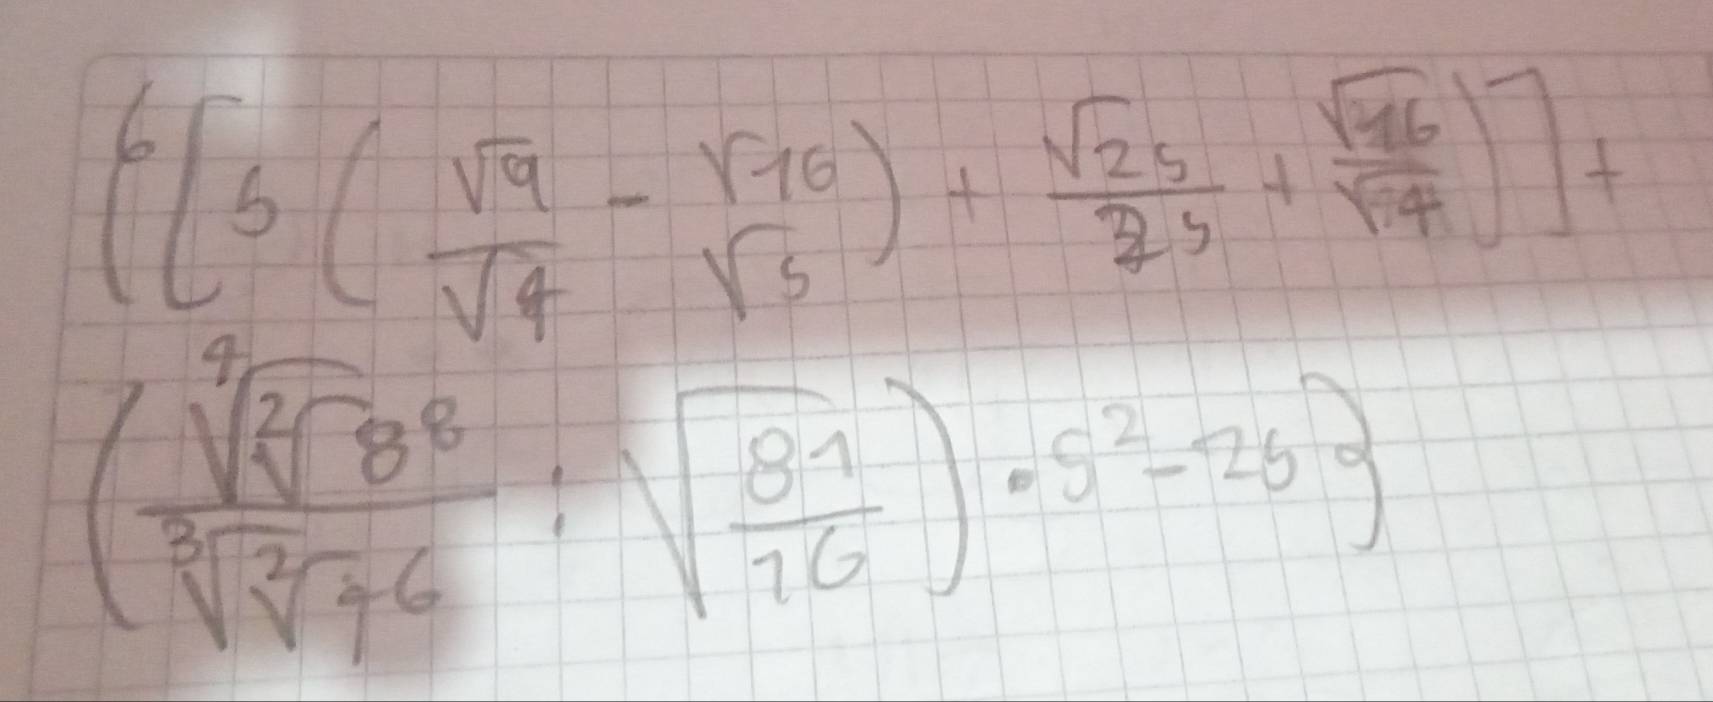 (6[5(√9/√4 - √16/√5) + √25/25 + √16/√4)] +
(⁴√²√8⁸/³√²√7⁶ : √81/16) · 5² - 25}